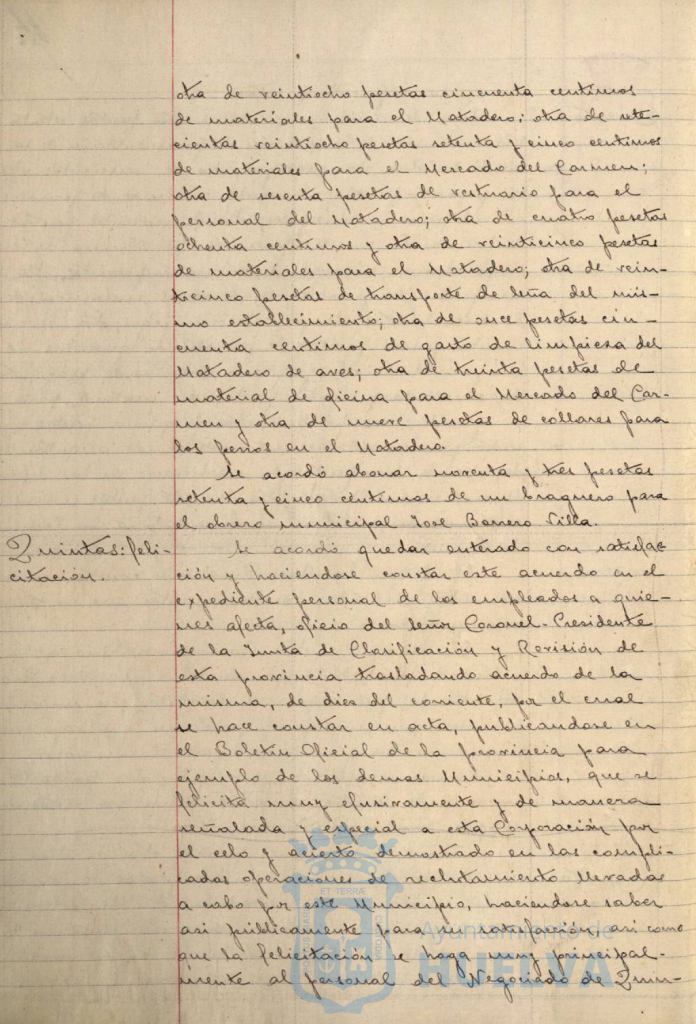 otra de veintiocho pesetas cincuenta centimos
de materiales para el Matadero; otra de sete-
cientas veintiocho pesetas setenta y cinco centimos
de materiales para el Mercado del Carmen;
otra de sesenta pesetas de vestuario para el
personal del Matadero; otra de cuatro pesetas
ochenta centimos y otra de veinticinco pesetas
de materiales para el Matadero; otra de vein-
ticinco pesetas de transporte de leña del mis-
mo establecimiento; otra de once pesetas cin-
cuenta centimos de gasto de limpieza del
Matadero de aves; otra de treinta pesetas de
material de oficina para el Mercado del Car-
men y otra de nueve pesetas de collares para
los perros en el Matadero.
Se acordó abonar noventa y tres pesetas
setenta y cinco centimos de un braguero para
el obrero municipal José Borrero Villa.
Quintas: feli-
citación.
Se acordó quedar enterado con satisfac-
ción y haciendose constar este acuerdo en el
expediente personal de los empleados a quie-
nes afecta, oficio del señor Coronel-Presidente
de la Junta de Clasificación y Revisión de
esta provincia trasladando acuerdo de la
misma, de dies del corriente, por el cual
se hace constar en acta, publicandose en
el Boletin Oficial de la provincia para
ejemplo de los demas Municipios, que se
felicita muy efusivamente y de manera
señalada y especial a esta Corporación por
el celo y acierto demostrado en las compli-
cadas operaciones de reclutamiento llevadas
a cabo por este Municipio, haciendose saber
asi publicamente para su satisfacción, asi como
que la felicitación se haga muy principal-
mente al personal del Negociado de Quin-
ET TERRA
Ayuntamiento de
HUELVA